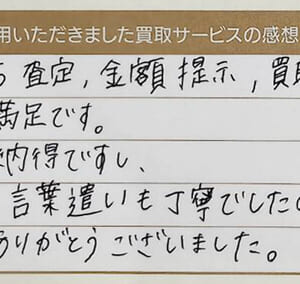 用いただきました買取サービスの感想
査定，金額提示，買
満足です。
納得ですし、
言葉遣いも丁寧でした
ありがとうございました。